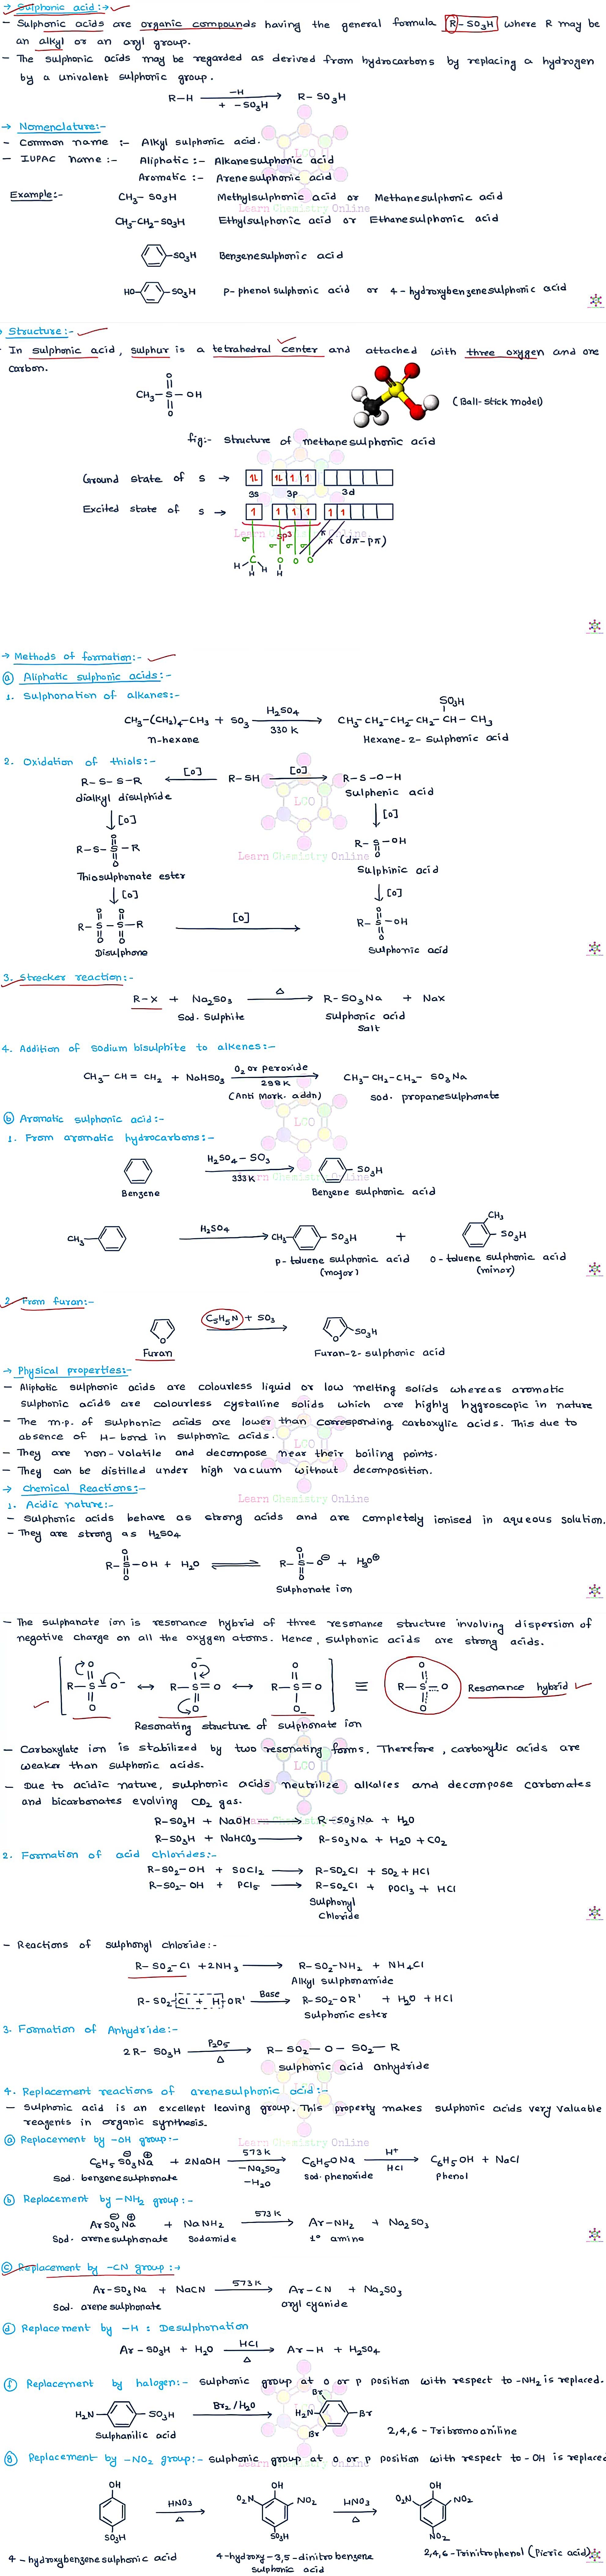 → Sulphonic acid:→
- Sulphonic acids are organic compounds having the general formula R-SO3H where R may be
an alkyl or an aryl group.
- The sulphonic acids may be regarded as derived from hydrocarbons by replacing a hydrogen
by a univalent sulphonic group.
R-H —H + -SO3H → R-SO3H
→ Nomenclature:-
- Common name :- Alkyl sulphonic acid.
- IUPAC name :- Aliphatic :- Alkanesulphonic acid
Aromatic :- Arenesulphonic acid
LCO
Learn Chemistry Online
Example:- CH3- SO3H Methylsulphonic acid or Methanesulphonic acid
CH3-CH2-SO3H Ethylsulphonic acid or Ethanesulphonic acid
-SO3H Benzenesulphonic acid
HO- -SO3H p-phenol sulphonic acid or 4-hydroxybenzenesulphonic acid
Structure:-
In sulphonic acid, sulphur is a tetrahedral center and attached with three oxygen and one
carbon.
O
CH3-S-OH (Ball-stick model)
O
fig:- Structure of methanesulphonic acid
Ground state of S →
3s 3p 3d
Excited state of S →
Learn Chemistry Online
sp3 π (dπ-pπ)
σ σ σ σ
H-C-H O O O
H H
→ Methods of formation:-
(a) Aliphatic sulphonic acids:-
1. Sulphonation of alkanes:-
SO3H
CH3-(CH2)4-CH3 + SO3 H2SO4 330 K → CH3-CH2-CH2-CH2-CH-CH3
n-hexane Hexane-2-Sulphonic acid
2. Oxidation of thiols:-
R-S-S-R ← [O] R-SH [O] → R-S-O-H
dialkyl disulphide Sulphenic acid
LCO
↓[O] ↓[O]
O O
R-S-S-R R-S-OH
O
Learn Chemistry Online
Thiosulphonate ester Sulphinic acid
↓[O] ↓[O]
O O O
R-S-S-R [O] → R-S-OH
O O O
Disulphone Sulphonic acid
3. Strecker reaction:-
R-X + Na2SO3 Δ → R-SO3Na + NaX
Sod. Sulphite sulphonic acid
salt
4. Addition of sodium bisulphite to alkenes:-
CH3-CH=CH2 + NaHSO3 O2 or peroxide 298 K → CH3-CH2-CH2-SO3Na
(Anti Mark. addn) sod. propanesulphonate
(b) Aromatic sulphonic acid:-
1. From aromatic hydrocarbons:-
H2SO4-SO3 333K → -SO3H
Learn Chemistry Online
Benzene Benzene sulphonic acid
CH3
CH3- H2SO4 → CH3- -SO3H + SO3H
p-toluene sulphonic acid o-toluene sulphonic acid
(major) (minor)
2. From furan:-
O C5H5N + SO3 → O -SO3H
Furan Furan-2-sulphonic acid
→ Physical properties:-
- Aliphatic sulphonic acids are colourless liquid or low melting solids whereas aromatic
sulphonic acids are colourless cystalline solids which are highly hygroscopic in nature
- The m.p. of sulphonic acids are lower than corresponding carboxylic acids. This due to
absence of H-bond in sulphonic acids.
- They are non-volatile and decompose near their boiling points.
- They can be distilled under high vacuum without decomposition.
→ Chemical Reactions:-
Learn Chemistry Online
1. Acidic nature:-
- Sulphonic acids behave as strong acids and are completely ionised in aqueous solution.
- They are strong as H2SO4
O O
R-S-OH + H2O ⇌ R-S-O⊖ + H3O⊕
O O
Sulphonate ion
- The sulphanate ion is resonance hybrid of three resonance structure involving dispersion of
negative charge on all the oxygen atoms. Hence, sulphonic acids are strong acids.
O O- O O
R-S-O- ↔ R-S=O ↔ R-S=O ≡ R-S=O Resonance hybrid
O O O- O
Resonating structure of sulphonate ion
- Carboxylate ion is stabilized by two resonating forms. Therefore, carboxylic acids are
weaker than sulphonic acids.
- Due to acidic nature, sulphonic acids neutrilize alkalies and decompose carbonates
and bicarbonates evolving CO2 gas.
Learn Chemistry Online
R-SO3H + NaOH → R-SO3Na + H2O
R-SO3H + NaHCO3 → R-SO3Na + H2O + CO2
2. Formation of acid chlorides:-
R-SO2-OH + SOCl2 → R-SO2Cl + SO2 + HCl
R-SO2-OH + PCl5 → R-SO2Cl + POCl3 + HCl
Sulphonyl
Chloride
- Reactions of sulphonyl chloride:-
R-SO2-Cl + 2NH3 → R-SO2-NH2 + NH4Cl
Alkyl sulphonamide
R-SO2-Cl + H-OR' Base → R-SO2-OR' + H2O + HCl
Sulphonic ester
3. Formation of Anhydride:-
2R-SO3H P2O5 Δ → R-SO2-O-SO2-R
sulphonic acid anhydride
4. Replacement reactions of arenesulphonic acid:-
- Sulphonic acid is an excellent leaving group. This property makes sulphonic acids very valuable
reagents in organic synthesis.
Learn Chemistry Online
(a) Replacement by -OH group:-
C6H5 SO3⊖ Na⊕ + 2NaOH 573K -Na2SO3 -H2O → C6H5ONa H+ HCl → C6H5OH + NaCl
Sod. benzenesulphonate sod. phenoxide phenol
(b) Replacement by -NH2 group:-
ArSO3⊖ Na⊕ + NaNH2 573K → Ar-NH2 + Na2SO3
Sod. arenesulphonate Sodamide 1° amine
(c) Replacement by -CN group:→
Ar-SO3Na + NaCN 573K → Ar-CN + Na2SO3
Sod. arene sulphonate aryl cyanide
(d) Replacement by -H : Desulphonation
Ar-SO3H + H2O HCl Δ → Ar-H + H2SO4
(f) Replacement by halogen:- Sulphonic group at o or p position with respect to -NH2 is replaced.
Br
H2N- -SO3H Br2/H2O → H2N- -Br
Br
Sulphanilic acid 2,4,6-Tribromoaniline
Learn Chemistry Online
(g) Replacement by -NO2 group:- sulphonic group at o or p position with respect to -OH is replaced
OH OH OH
HNO3 Δ → O2N NO2 HNO3 Δ → O2N NO2
SO3H SO3H NO2
4-hydroxybenzene sulphonic acid 4-hydroxy-3,5-dinitrobenzene 2,4,6-Trinitrophenol (Picric acid)
sulphonic acid